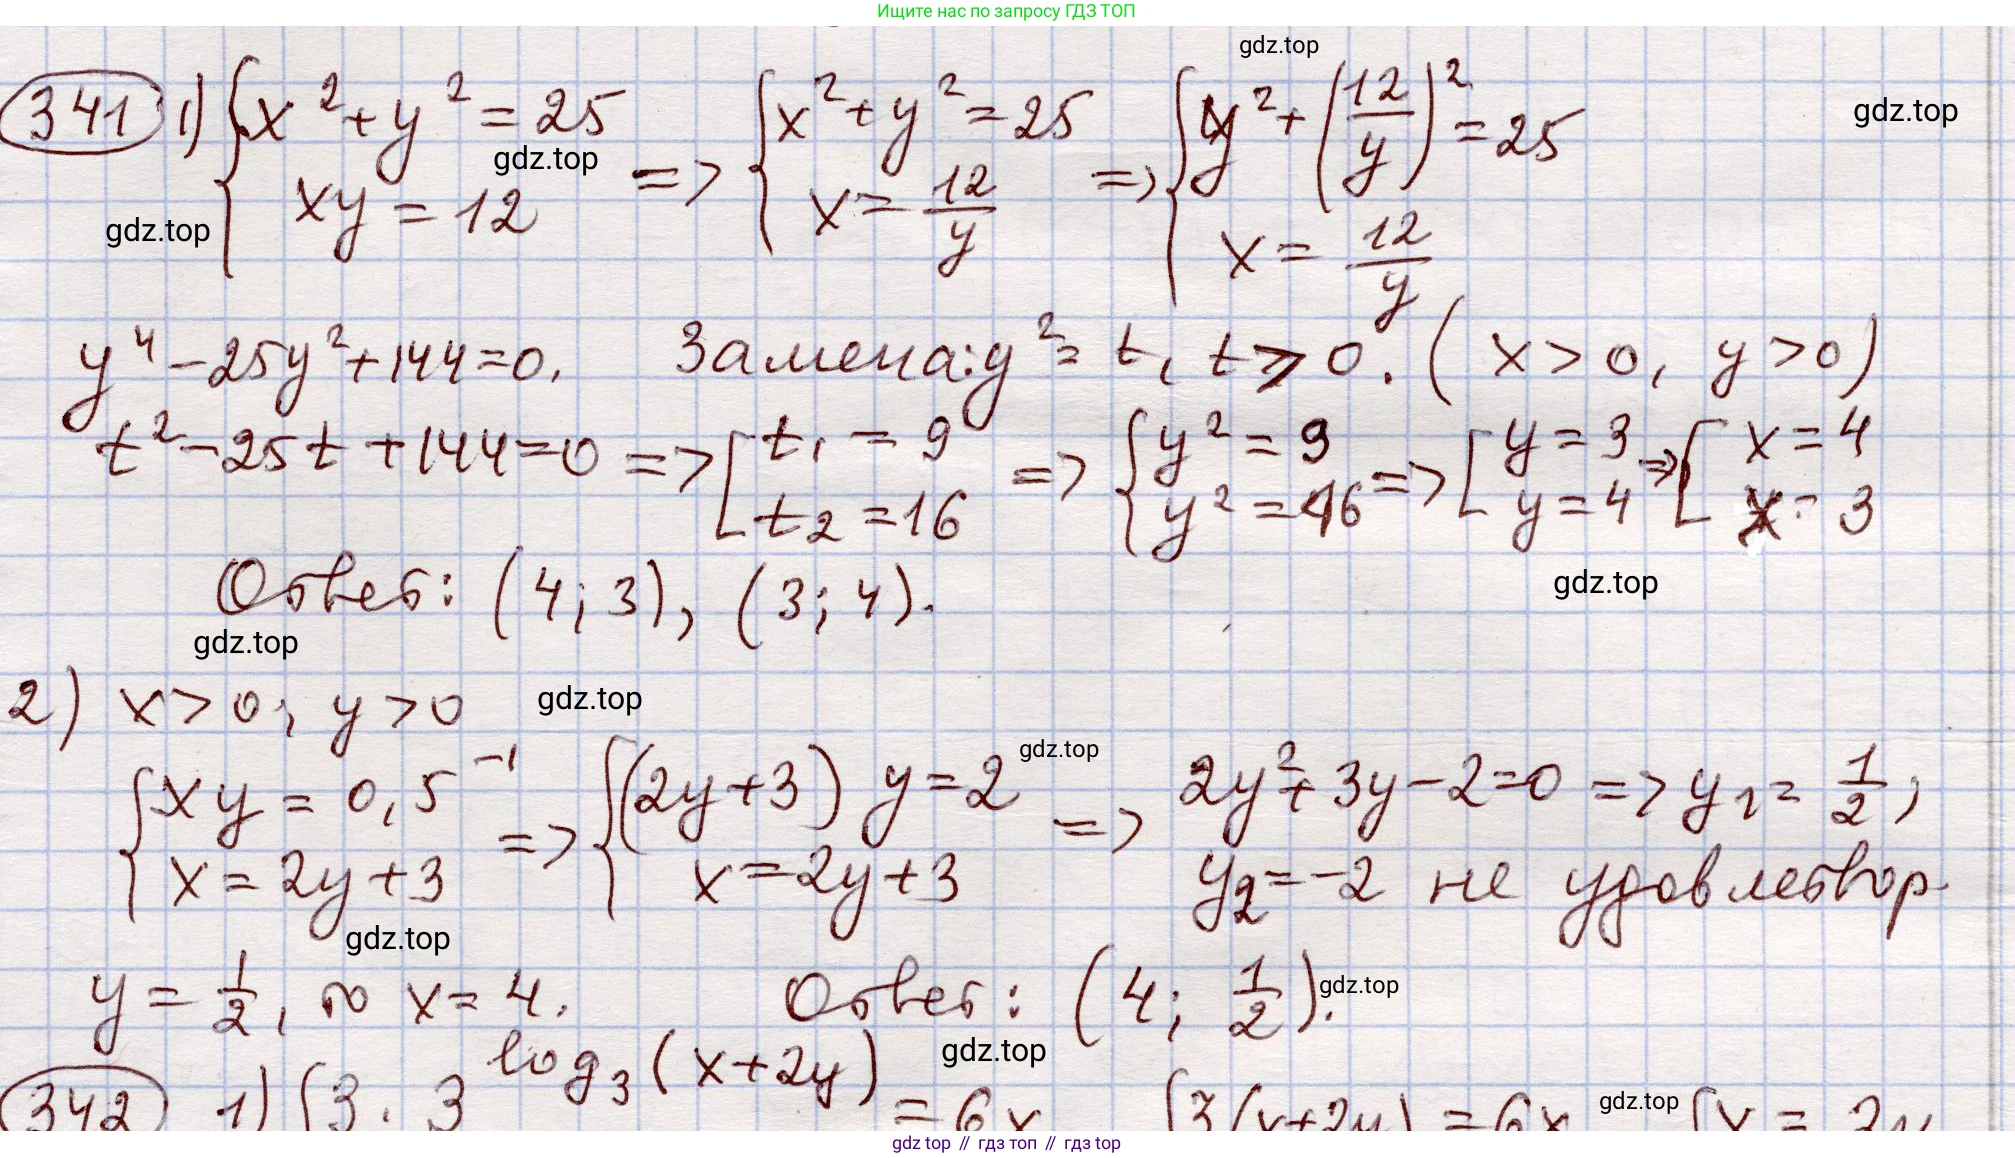 Ищите нас по запросу ГДЗ ТОП
gdz.top
341 1) { x² + y² = 25 => { x² + y² = 25 => { y² + (12/y)² = 25
gdz.top gdz.top
xy = 12 x = 12/y x = 12/y
gdz.top
y⁴ - 25y² + 144 = 0. Замена: y² = t, t > 0. (x > 0, y > 0)
t² - 25t + 144 = 0 => [ t₁ = 9 => { y² = 9 => [ y = 3 => [ x = 4
t₂ = 16 y² = 16 y = 4 x = 3
gdz.top
Ответ: (4; 3), (3; 4).
gdz.top
2) x > 0, y > 0 gdz.top
{ xy = 0,5⁻¹ => { (2y+3) y = 2 => 2y² + 3y - 2 = 0 => y₁ = 1/2;
gdz.top
x = 2y + 3 x = 2y + 3 y₂ = -2 не удовлетвор.
gdz.top
y = 1/2, то x = 4. Ответ: (4; 1/2). gdz.top
gdz.top
342 1) { 3 · 3^log₃(x+2y) = 6x { 3(x+2y) = 6x gdz.top { x = 2y
gdz top // гдз топ // гдз top